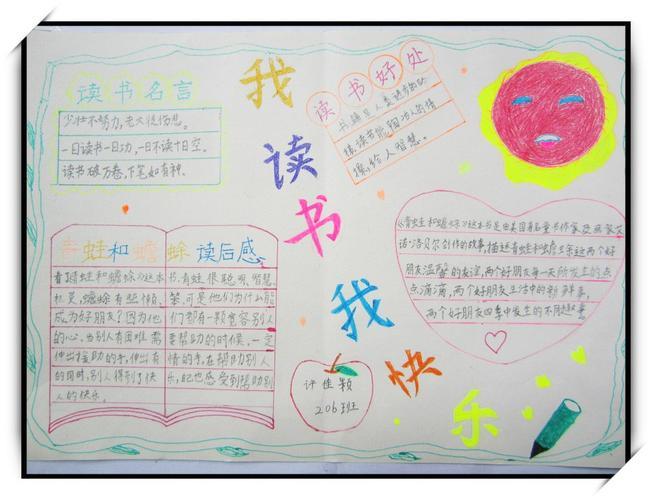 读书名言
少壮不努力,老大徒伤悲。
一日读书一日功,一日不读十日空。
读书破万卷,下笔如有神。
我读书我快乐
读书好处
书籍是人类进步的动
梯,读书能
给人智慧。
青蛙和蟾蜍读后感
青蛙和蟾蜍》这本
书,青蛙很聪明、智慧
蟾蜍有些懒
惰,可是他们为什么能
成为好朋友?因为他
们都有一颗宽容别人
的心,当别人有困难需
要帮助的时候,一定
伸出援助的手,伸出有
情的手,在帮助别人
的同时,别人得到了快
乐,
也感受到帮助别
人的快乐。
《青蛙和蟾蜍》这本书是由美国著名童书作家
洛贝尔创作的故事,描述青蛙和蟾蜍这两个好
朋友温馨的友谊,两个好朋友每一天所发生的点
点滴滴,两个好朋友生活中的新鲜事,
两个好朋友四季中发生的不同趣事
许佳颖
206班